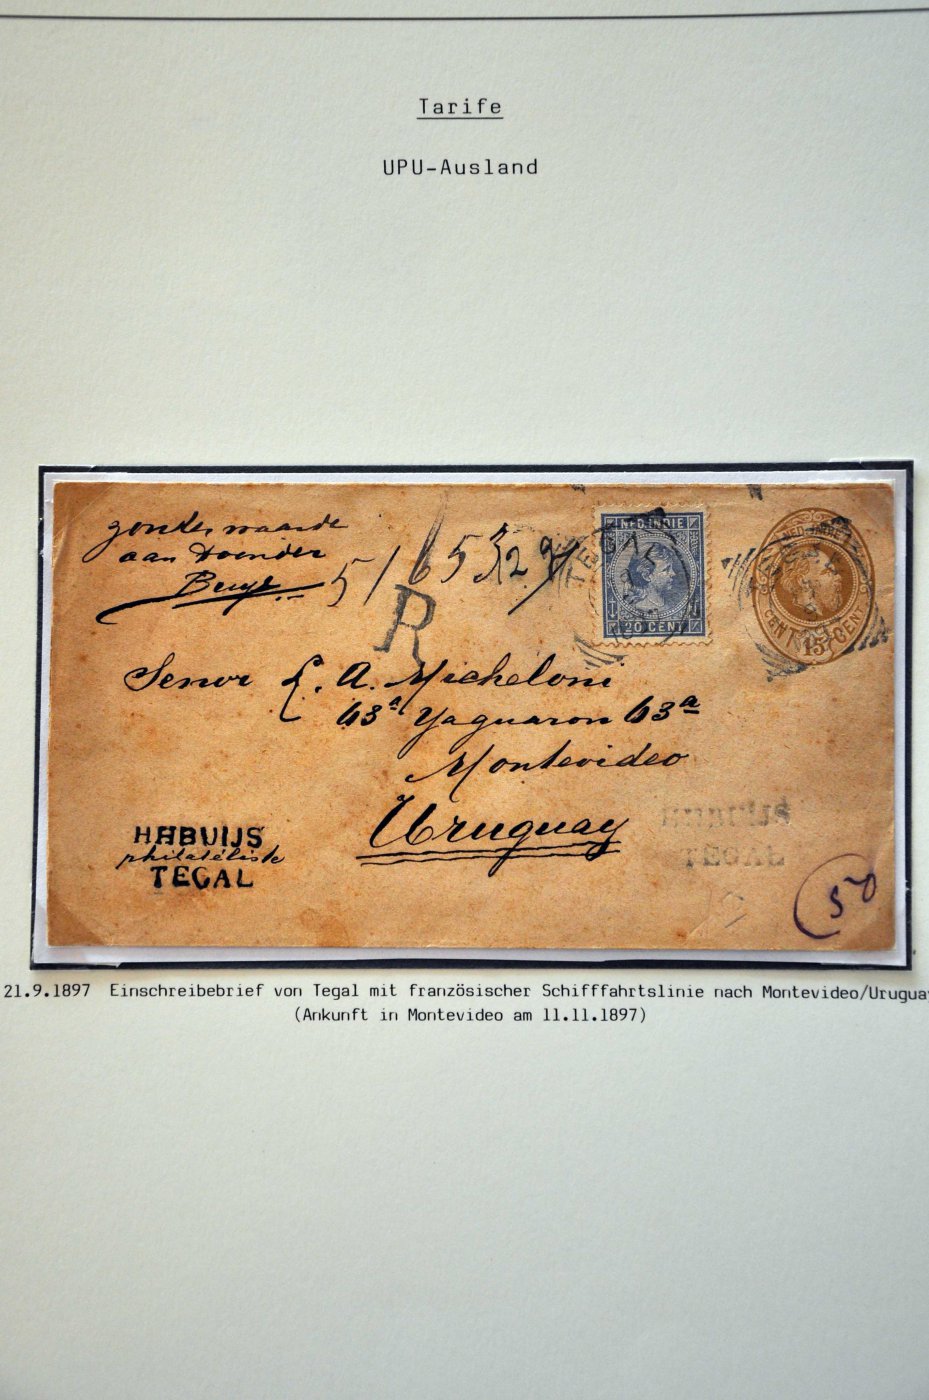 Tarife
UPU-Ausland
zonder waarde
aan Doender
Buys
R
NED. INDIE
20 CENT
NED. INDIE
CENT 15 CENT
TEGAL
Senor E. A. Micheloni
63ª Yaguaron 63ª
Montevideo
Uruguay
HBBUIJS
philatéliste
TEGAL
TEGAL
50
21.9.1897 Einschreibebrief von Tegal mit französischer Schifffahrtslinie nach Montevideo/Uruguay
(Ankunft in Montevideo am 11.11.1897)